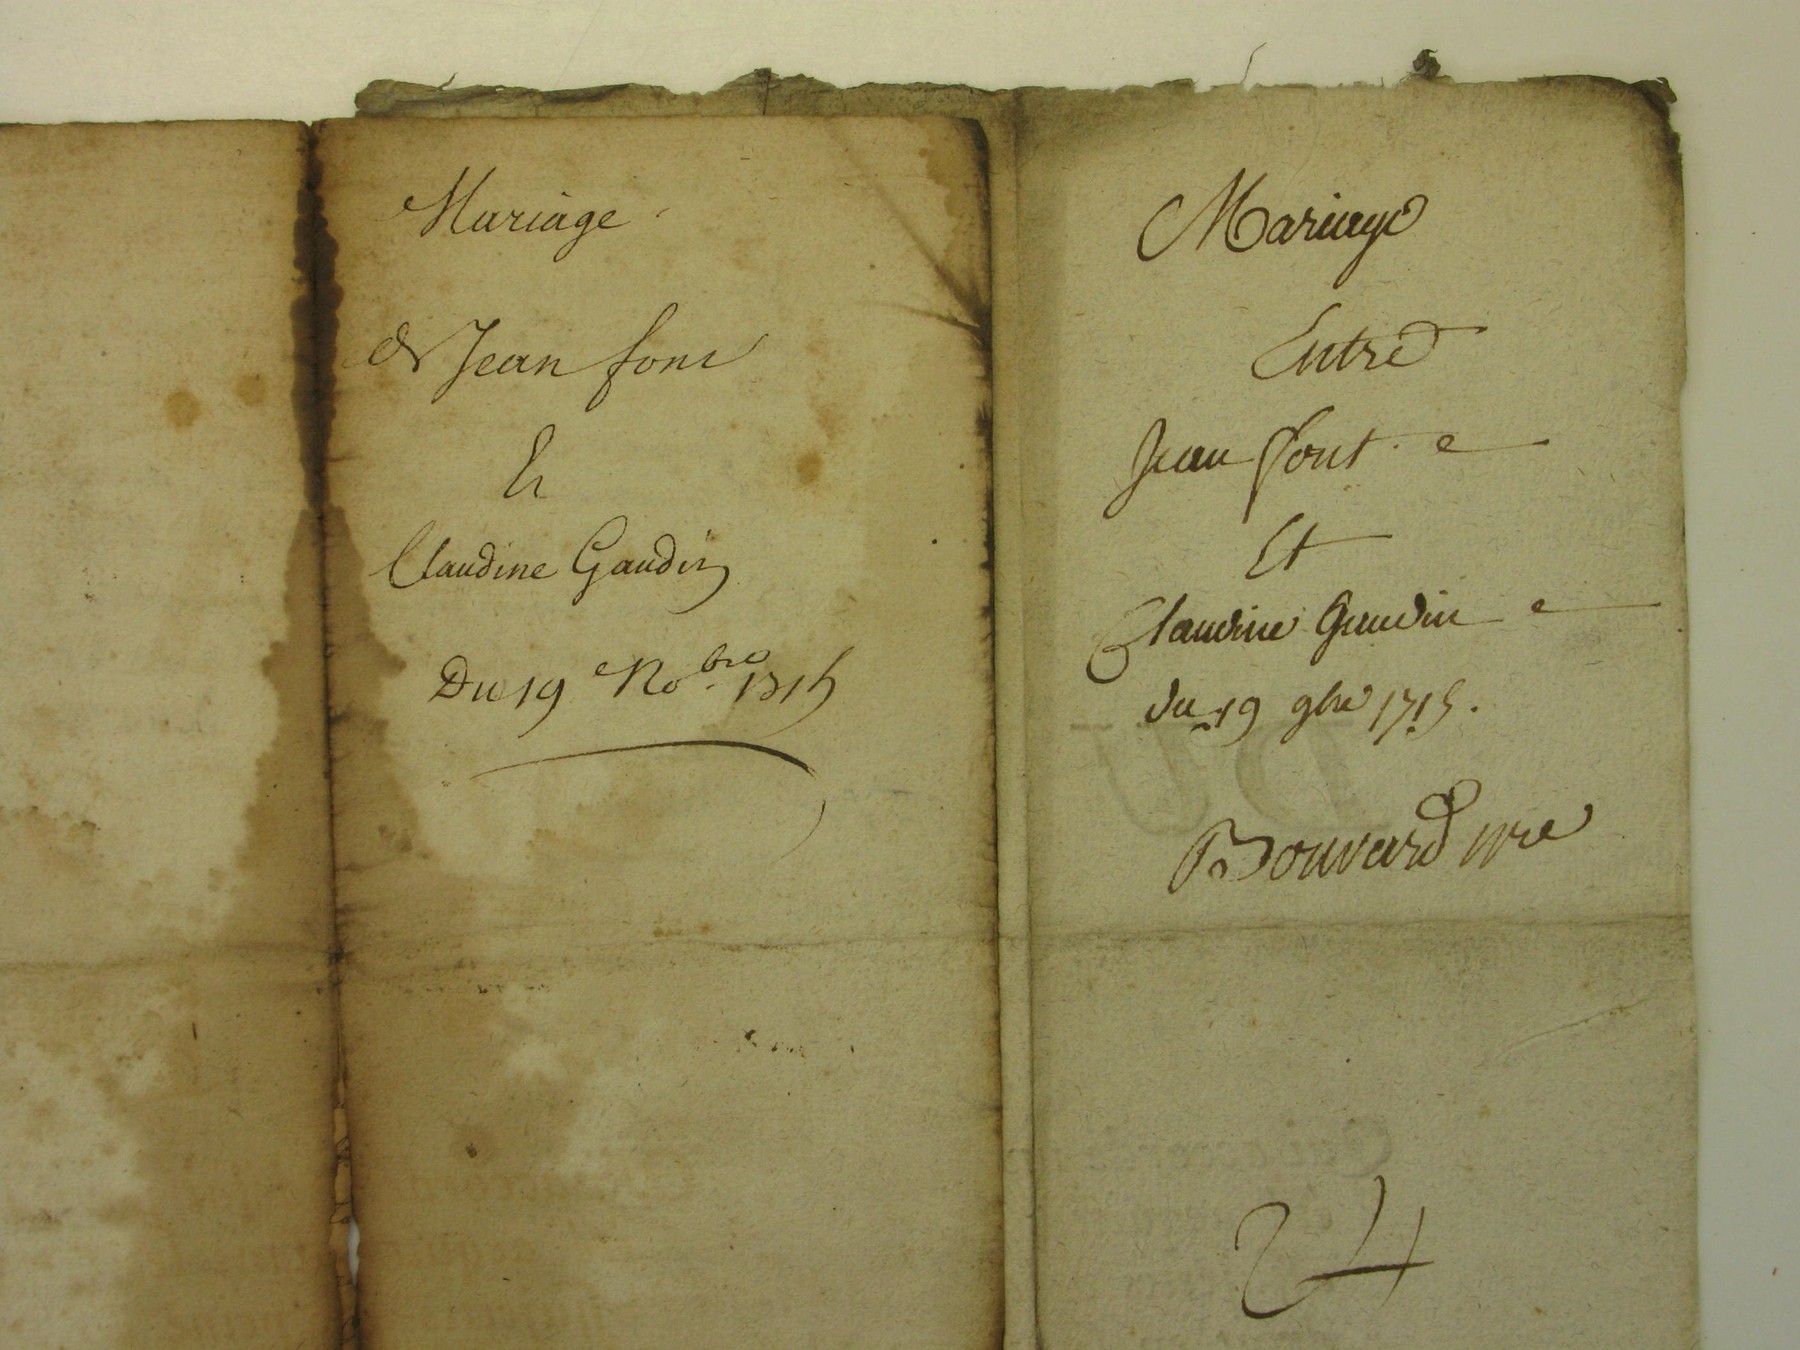 Mariage
de Jean font
Et
Claudine Gaudin
Du 19e Nobre 1715
Mariage
Entre
Jean font
Et
Claudine Gaudin
du 19 9bre 1715.
Bouvard nre
24